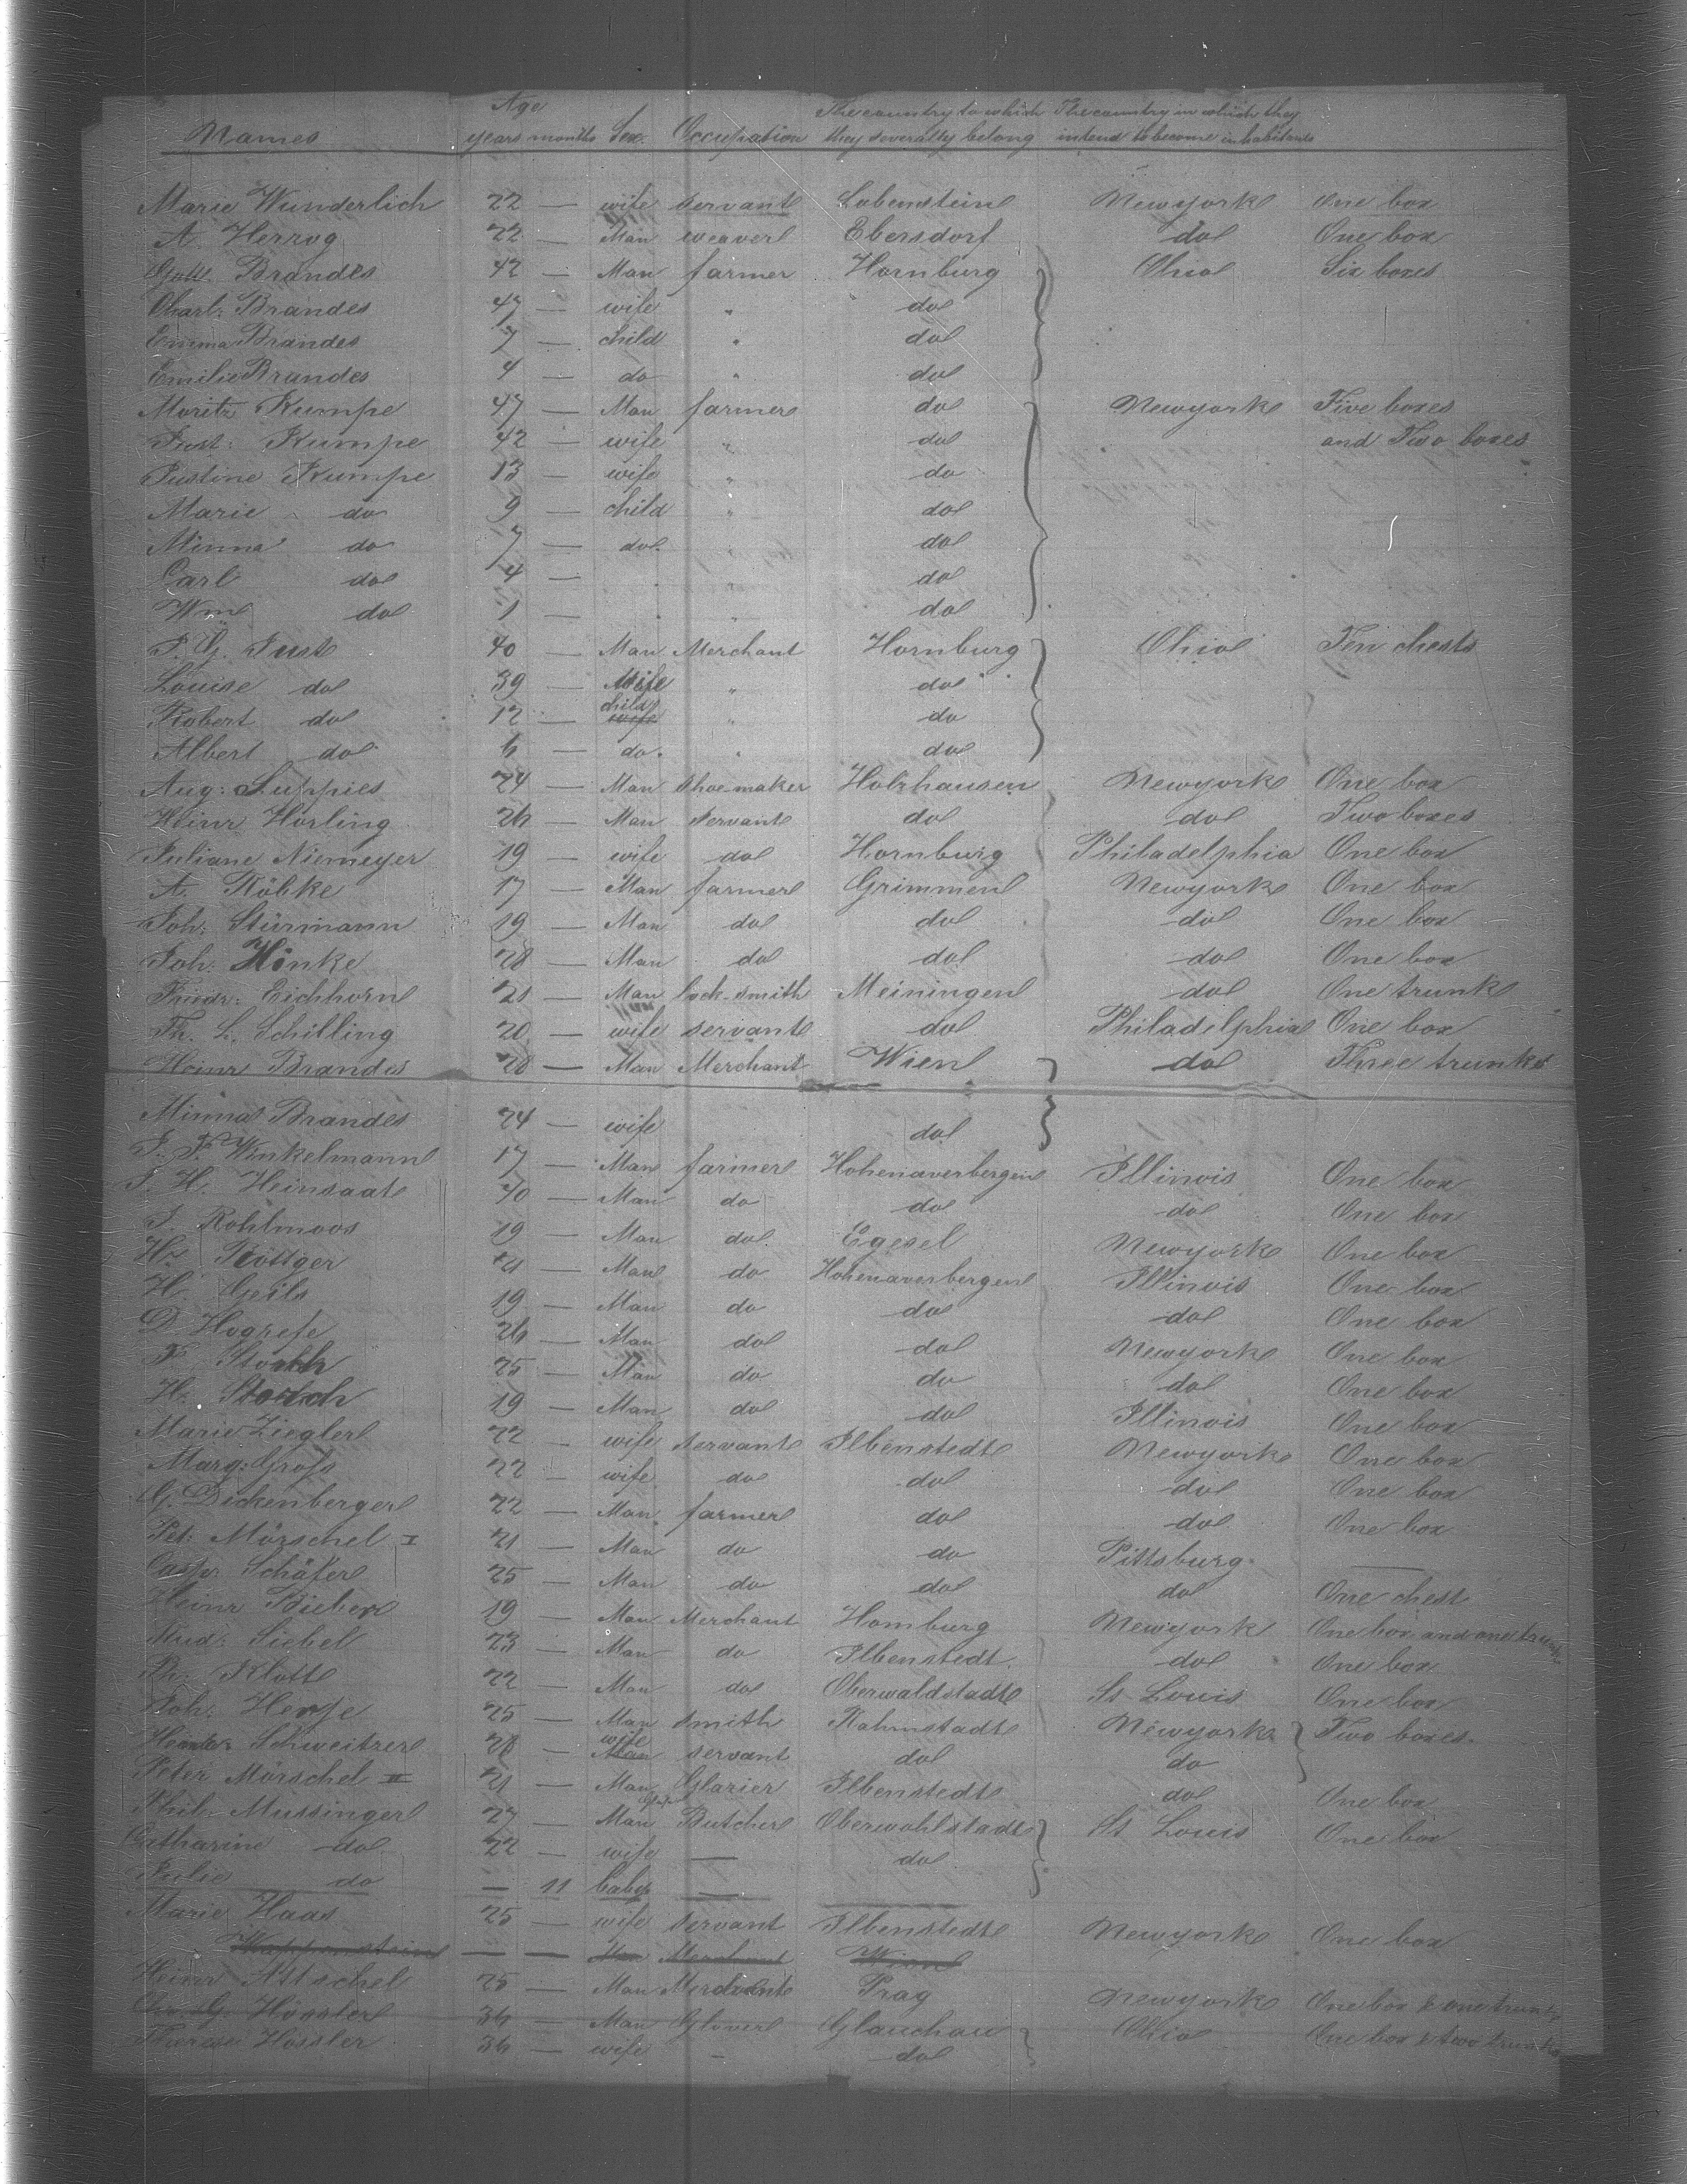 Age The country to which The country in which they
Names years months Sex. Occupation they severally belong intend to become inhabitants
Marie Wunderlich 22 — wife servant Lobenstein Newyork One box
A. Herzog 22 — Man weaver Ebersdorf do One box
Gottl. Brandes 42 — Man farmer Hornburg Ohio Six boxes
Charl: Brandes 47 — wife " do
Emma Brandes 7 — child " do
Emilie Brandes 4 — do " do
Moritz Kumpe 47 — Man farmer do Newyork Five boxes
Just: Kumpe 42 — wife " do and Two boxes
Justine Kumpe 13 — wife " do
Marie do 9 — child " do
Minna do 7 — do. " do
Carl do 4 — " do
Wm do 1 — " do
J. G. Just 40 — Man Merchant Hornburg Ohio Ten chests
Louise do 39 — Wife " do
Robert do 12 — child wife " do
Albert do 6 — do. " do
Aug: Luppies 24 — Man shoe-maker Holzhausen Newyork One box
Heinr Horling 26 — Man servant do do Two boxes
Juliane Niemeyer 19 — wife do Hornburg Philadelphia One box
A. Röbke 17 — Man farmer Grimmen Newyork One box
Joh: Stürmann 19 — Man do do do One box
Joh: Hinke 28 — Man do do do One box
Friedr: Eichhorn 21 — Man lock-smith Meiningen do One trunk
Th. L. Schilling 20 — wife servant do Philadelphia One box
Heinr Brandes 28 — Man Merchant Wien do Three trunks
Minna Brandes 24 — wife do
J. F. Winkelmann 17 — Man farmer Hohenaverbergen Illinois One box
J. H. Heinsaat 40 — Man do do do One box
J. Rohlmoos 19 — Man do. Egesel Newyork One box
Hr Röttger 21 — Man do Hohenaverbergen Illinois One box
H. Geils 19 — Man do do do One box
D. Hogrefe 26 — Man do do Newyork One box
F. 25 — Man do do do One box
H: Storch 19 — Man do do Illinois One box
Marie Ziegler 22 — wife servant Ilbenstedt Newyork One box
Marg: Groß 22 — wife do do do One box
G. Dickenberger 22 — Man farmer do do One box
Pet: Mörschel I 21 — Man do do Pittsburg —
Casp: Schäfer 25 — Man do do do One chest
Heinr Bieber 19 — Man Merchant Homburg Newyork One box and one trunk
Rud: Siebel 23 — Man do Ilbenstedt do One box
Ph: Klott 22 — Man do Oberwaldstadt St Louis One box
Joh: 25 — Man smith Rahmstadt Newyork Two boxes.
Schweitzer 28 — wife Man servant do do
Peter Mörschel II 21 — Man Glazier Ilbenstedt do One box
Phil. Mussinger 27 — Man Butcher Oberwohlstadt St Louis One box
Catharine do 22 — wife — do
Julie do — 11 baby —
Marie Haas 25 — wife servant Ilbenstedt Newyork One box
— — Man Merchant Wien
Heinr Altschel 25 — Man Merchant Prag Newyork One box & one trunk
Chr. G. Hössler 36 — Man Glover Glauchau Ohio One box & two trunks
Therese Hössler 36 — wife — do